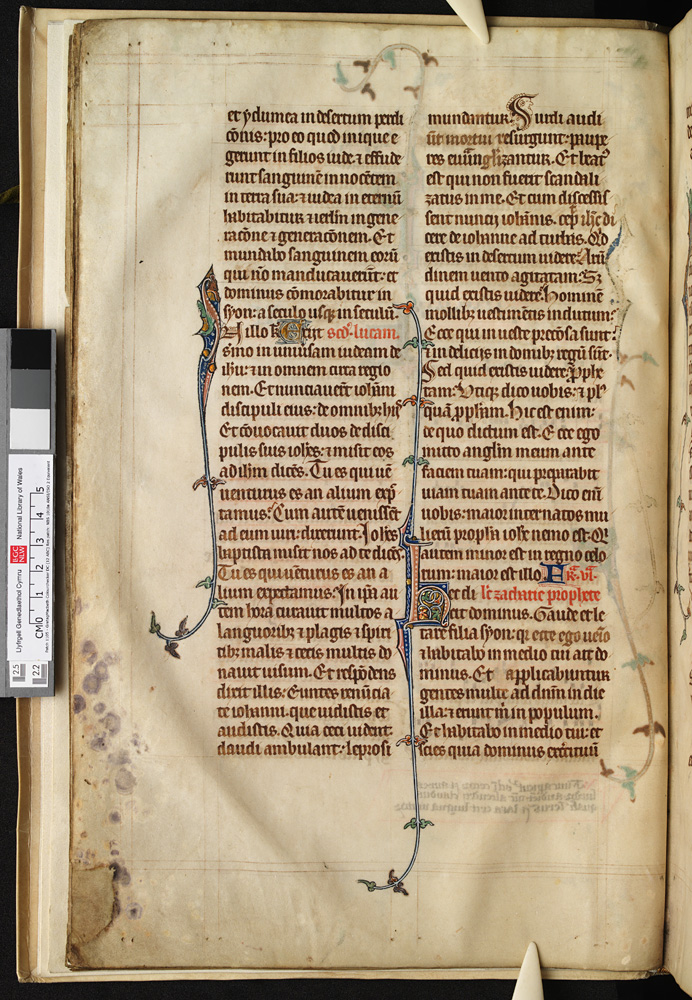 et ydumea in desertum perdi
cōnis: pro eo quod inique e
gerunt in filios iude. ⁊ effude
runt sanguinē innocētem
in terra sua: ⁊ iudea in eternū
habitabitur ⁊ ierl̄m in gene
racōne ⁊ generacōnem. Et
mundabo sanguinem eorū
qui nō mandūcauerūt: et
dominus cōmorabitur in
syon: a seculo usq; in seculū.
In illo t̄ Exiit scd̓. lucam.
sermo in uniuersam iudeam de
ihū: ⁊ in omnem circa regio
nem. Et nunciauerūt iohāni
discipuli eius: de omnib; hiis
Et cōuocauit duos de disci
pulis suis ioh̄es: ⁊ misit eos
ad ih̄m dicēs. Tu es qui uē
uenturus es an alium exp̄c
tamus? Cum autē uenissēt
ad eum uiri: dixerunt. Ioh̄es
baptista misit nos ad te dicēs.
Tu es qui uēturus es an a
lium expectamus. In ip̄a au
tem hora curauit multos a
languorib; ⁊ plagis ⁊ spiri
tib; malis ⁊ cecis multis do
nauit uisum. Et respōdens
dixit illis: Euntes renūcia
te iohanni. que uidistis et
audistis. Quia ceci uident.
claudi ambulant: leprosi
mundantur. Surdi audi
ūt mortui resurgunt: paupe
res euūngl̓izantur. Et beat᷒
est qui non fuerit scandali
zatus in me. Et cum discessis
sent nuncii ioh̄nis. cep̄ ih̄c di
cere de iohanne ad turbas. Qd̓
existis in desertum uidere? Arū
dinem uento agitatam: Sȝ
quid existis uidere? hominē
mollib; uestimētis indutum:
Ecce qui in ueste precōsa sunt:
⁊ in deliciis in domib; regū sūt.
Sed quid existis uidere? Pp̄he
tam? Utiq; dico uobis: ⁊ pl᷒
quā pp̄hm. Hic est enim:
de quo dictum est. Ecce ego
mitto angl̄m meum ante
faciem tuam: qui preparabit
uiam tuam ante te. Dico enī
uobis: maior inter natos mu
lierū proph̄a ioh̄e nemo est. Q̇
autem minor est in regno celo
rum: maior est illo. Fr̄. vi.
Hec di l̄c zacharie prophete
cit dominus. Gaude et le
tare filia syon: q̄ ecce ego uēio
⁊ habitabo in medio tui ait do
minus. Et applicabuntur
gentes multe ad dn̄m in die
illa: ⁊ erunt m̄ in populum.
Et habitabo in medio tui: et
scies quia dominus exercituū
Llyfrgell Genedlaethol Cymru
National Library of Wales
LlGC
NLW
CM 0 1 2 3 4 5
2.5
2.2